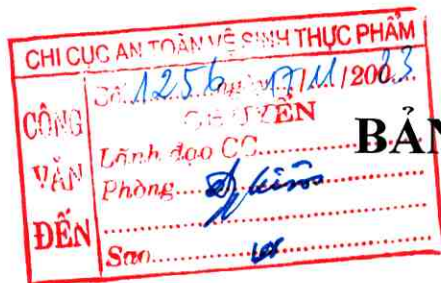 CHI CỤC AN TOÀN VỆ SINH THỰC PHẨM
CÔNG VĂN ĐẾN
Số 1256 ngày 17/11/2003
CHUYỂN
Lãnh đạo CC
Phòng
Sao
BẢN